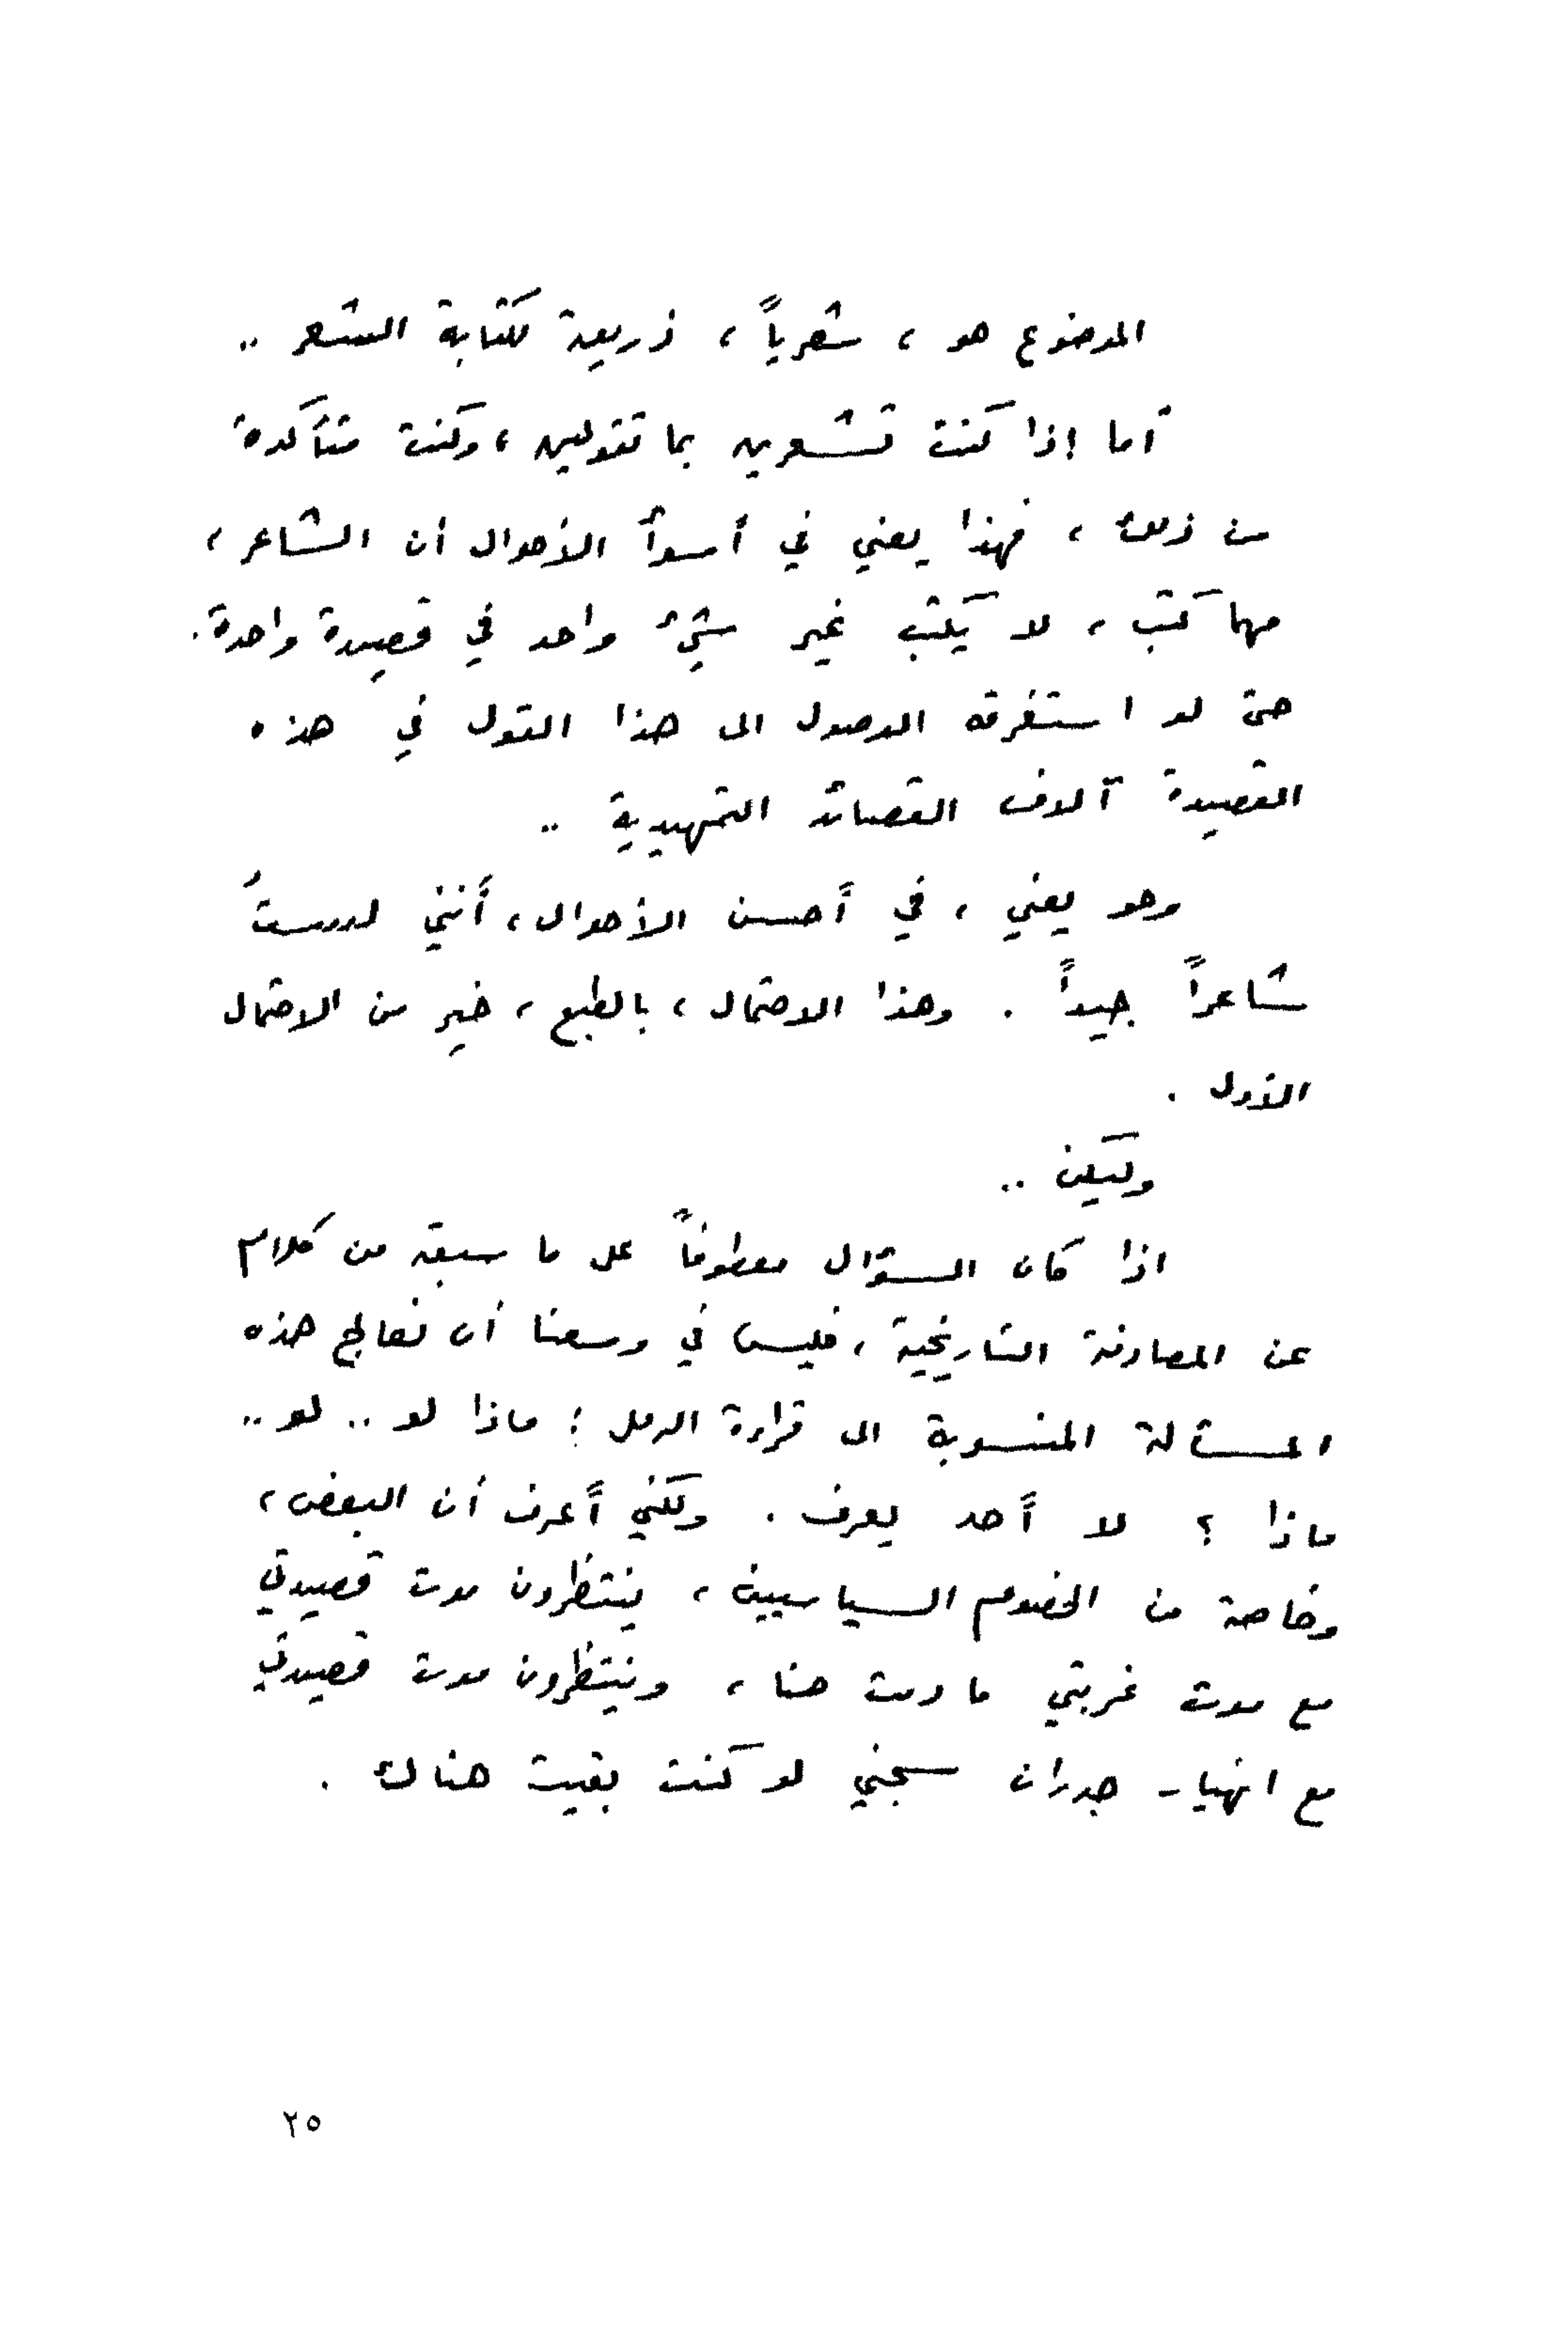 الموضوع هو ، شعرياً ، ذريعة لكتابة الشعر ..
أما إذا كنت تشعرين بما تقولين ، وكنت متأكدة
من ذلك ، فهذا يعني في أسوأ الأحوال أن الشاعر ،
مهما كتب ، لا يكتب غير شيء واحد في قصيدة واحدة .
حتى لو استغرقه الوصول الى هذا القول في هذه
القصيدة آلاف القصائد التمهيدية ..
وهو يعني ، في أحسن الأحوال ، أنني لستُ
شاعراً جيداً . وهذا الاحتمال ، بالطبع ، خير من الاحتمال
الأول .
وليكن ..
اذا كان السؤال معطوفاً على ما سبقه من كلام
عن المصادفة التاريخية ، فليس في وسعنا أن نعالج هذه
المسألة المنسوبة الى قراءة الرمل : ماذا لو .. لو ..
ماذا ؟ لا أحد يعرف . ولكني أعرف أن البعض ،
وخاصة من الخصوم السياسيين ، ينتظرون موت قصيدتي
مع موت غربتي ما دمت هنا ، وينتظرون موت قصيدتي
مع انهيار جدران سجني لو كنت بقيت هناك .
٢٥